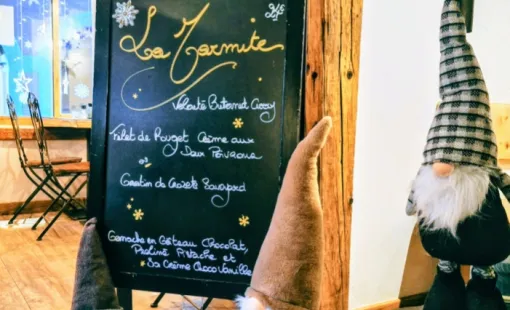 La Marmite
Velouté Butternut Curry
Filet de Rouget Crème aux
Deux Poivrons
ou
Gratin de Crozets Savoyard
Ganache en Gâteau Chocolat,
Praliné Pistache et
Sa Crème Choco Vanille